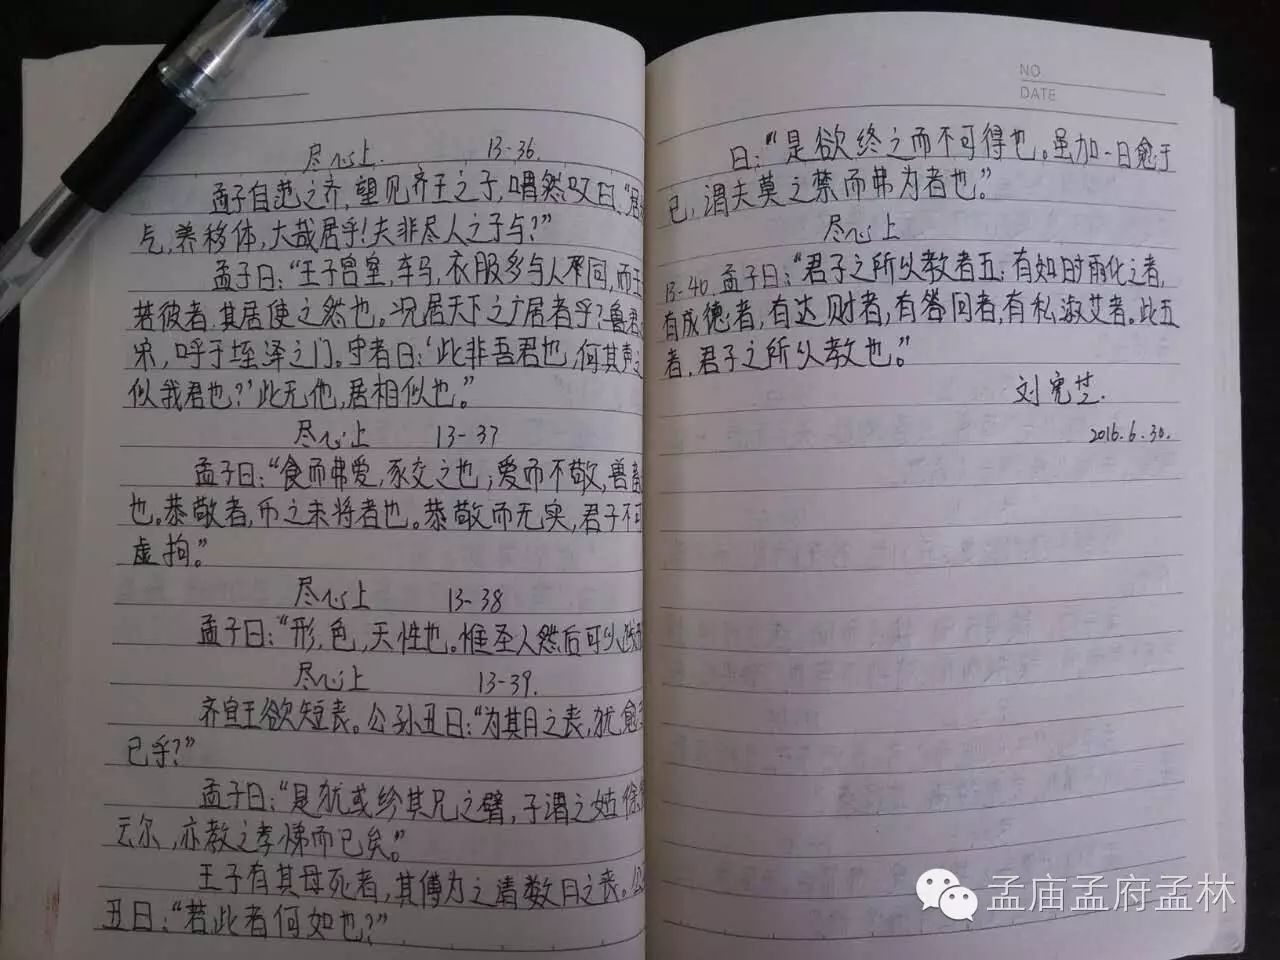 尽心上 13-36.
孟子自范之齐,望见齐王之子,喟然叹曰:“居
气,养移体,大哉居乎!夫非尽人之子与?”
孟子曰:“王子宫室,车马,衣服多与人同,而王
若彼者,其居使之然也。况居天下之广居者乎?鲁君
宋,呼于垤泽之门。守者曰:‘此非吾君也,何其声之
似我君也?’此无他,居相似也。”
尽心上 13-37
孟子曰:“食而弗爱,豕交之也;爱而不敬,兽畜
也。恭敬者,币之未将者也。恭敬而无实,君子不可
虚拘。”
尽心上 13-38
孟子曰:“形,色,天性也。惟圣人然后可以践形
尽心上 13-39.
齐宣王欲短丧。公孙丑曰:“为其月之丧,犹愈
已乎?”
孟子曰:“是犹或紾其兄之臂,子谓之姑徐
云尔,亦教之孝悌而已矣。”
王子有其母死者,其傅为之请数月之丧。公
丑曰:“若此者何如也?”
NO
DATE
曰:“是欲终之而不可得也。虽加一日愈于
已,谓夫莫之禁而弗为者也。”
尽心上
13-40. 孟子曰:“君子之所以教者五:有如时雨化之者,
有成德者,有达财者,有答问者,有私淑艾者。此五
者,君子之所以教也。”
刘宪芝.
2016.6.30.
孟庙孟府孟林